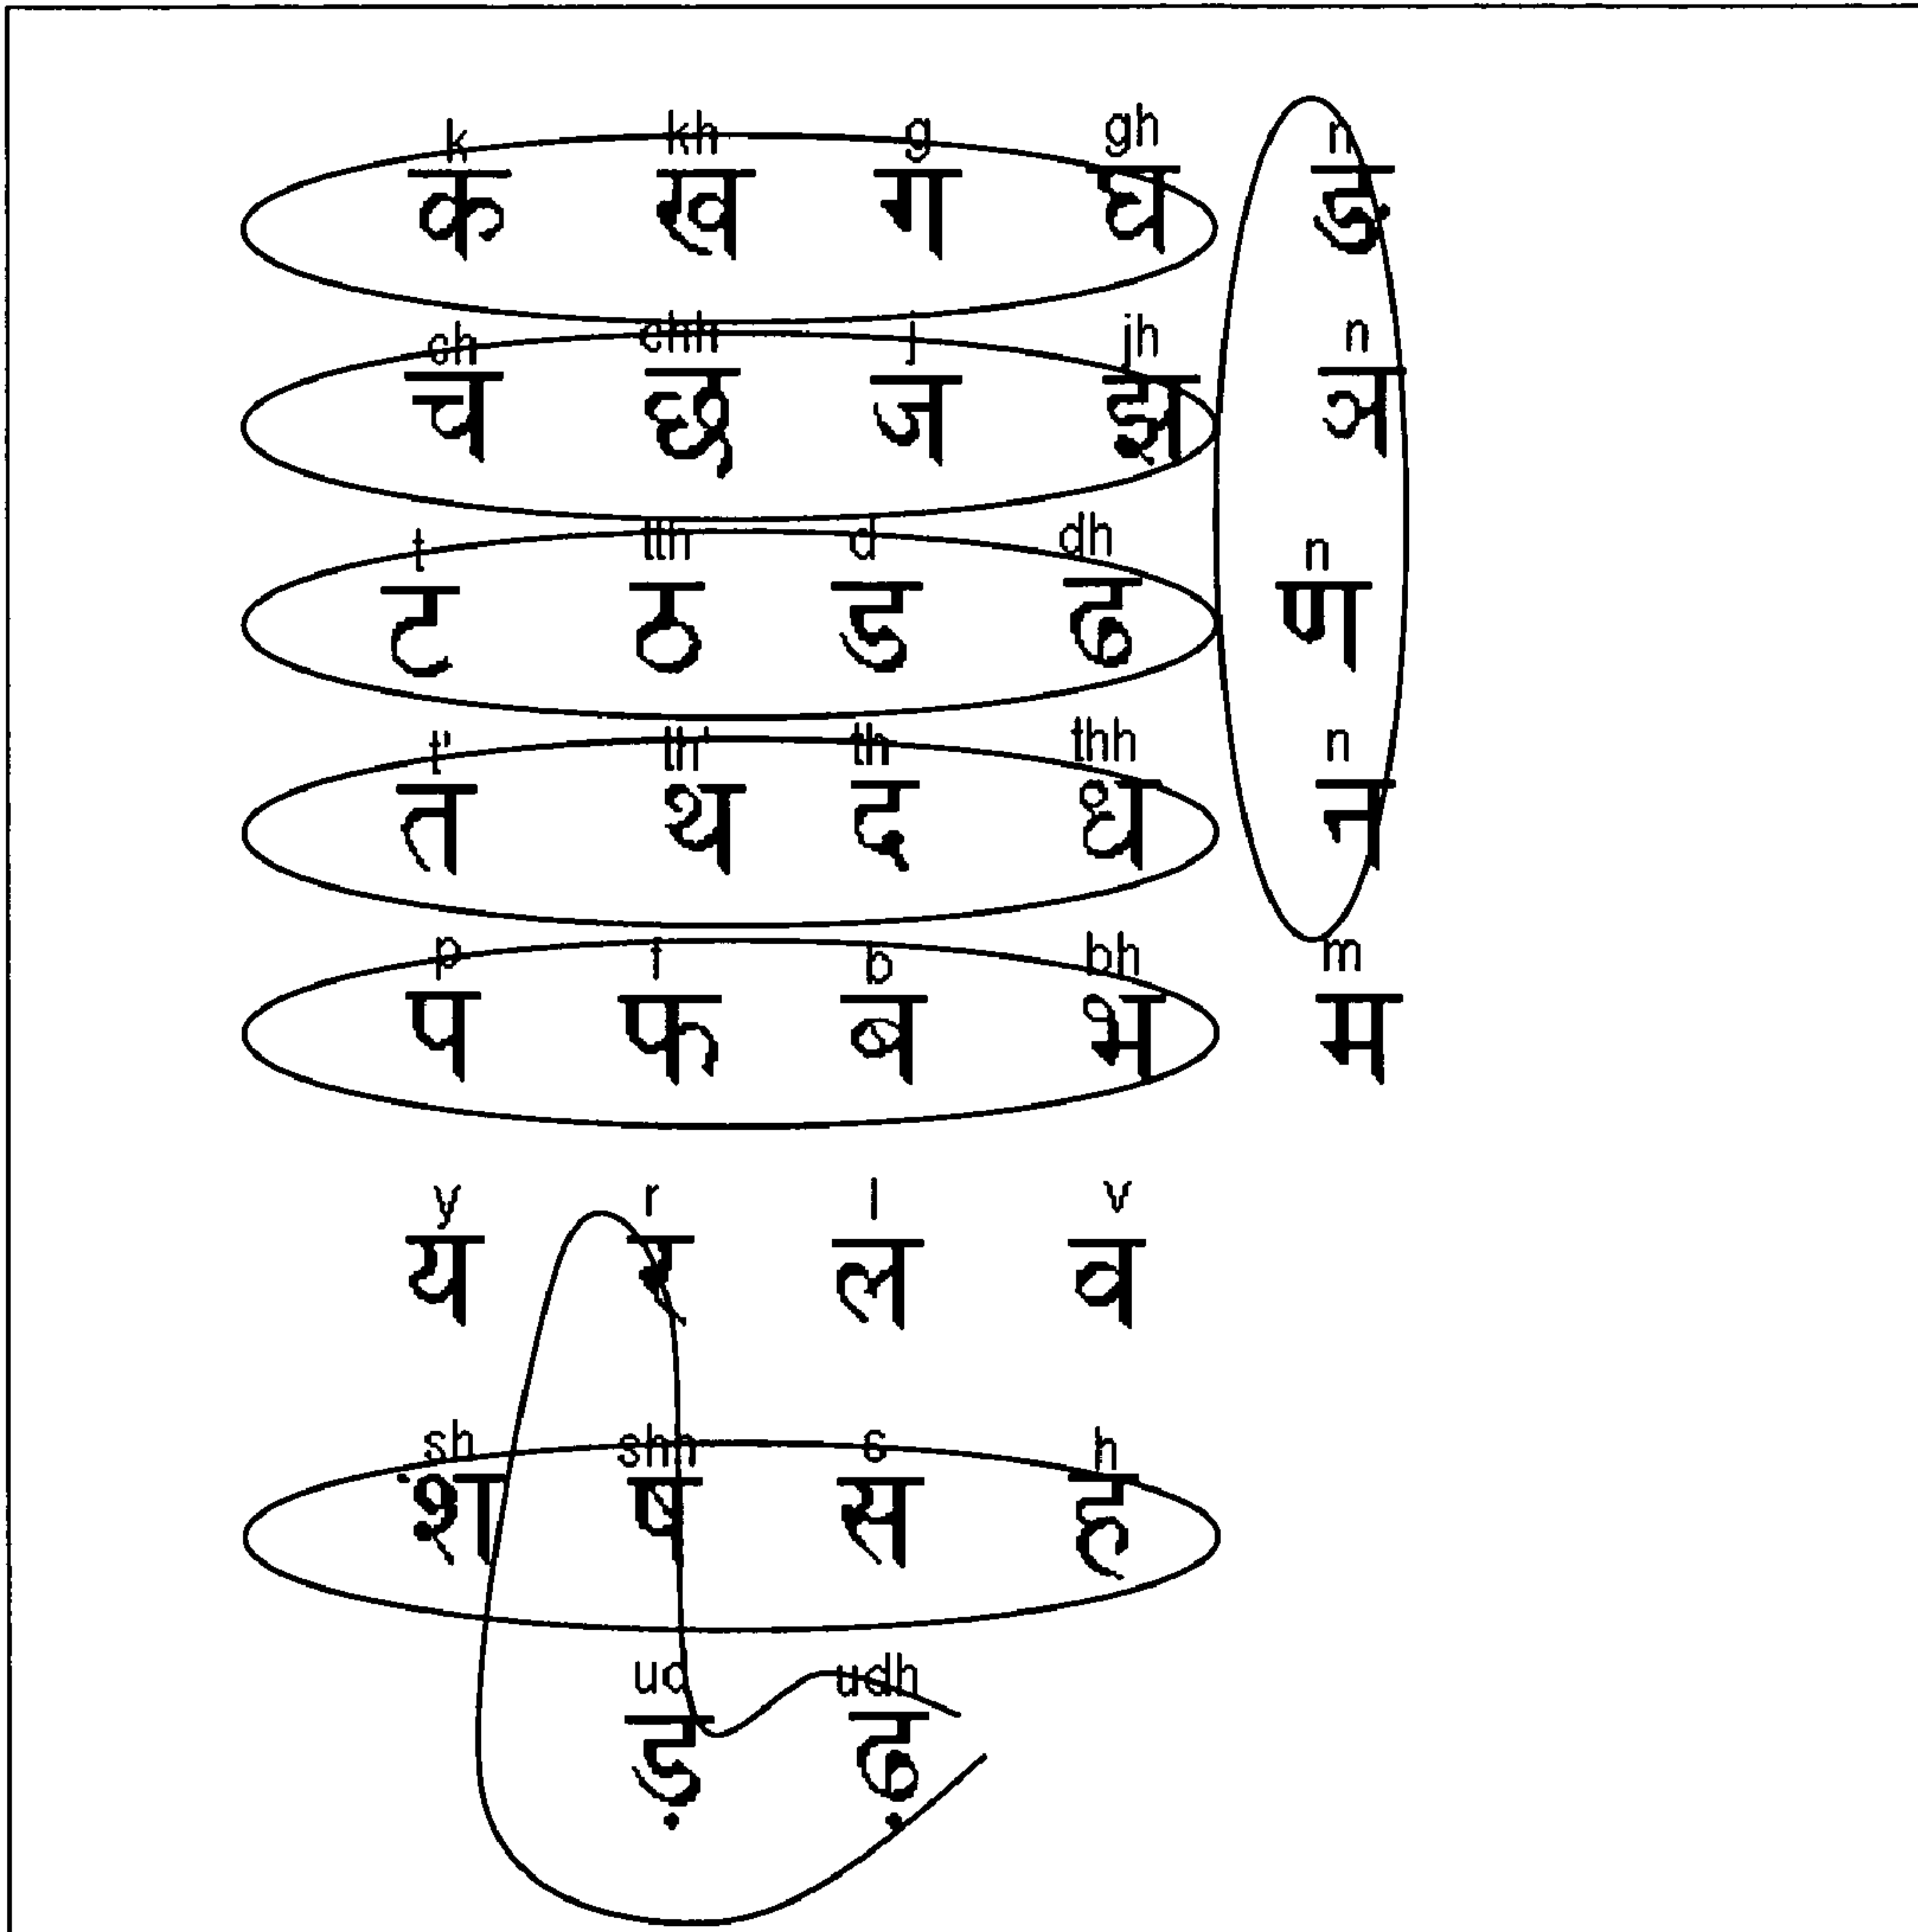 k kh g gh n
क ख ग घ ङ
ch chh j jh n
च छ ज झ ञ
t tth d dh n
ट ठ ड ढ ण
t' th' th thh n
त थ द ध न
p f b bh m
प फ ब भ म
y r l v
य र ल व
sh shh s h
श ष स ह
udh
ड़ ढ़